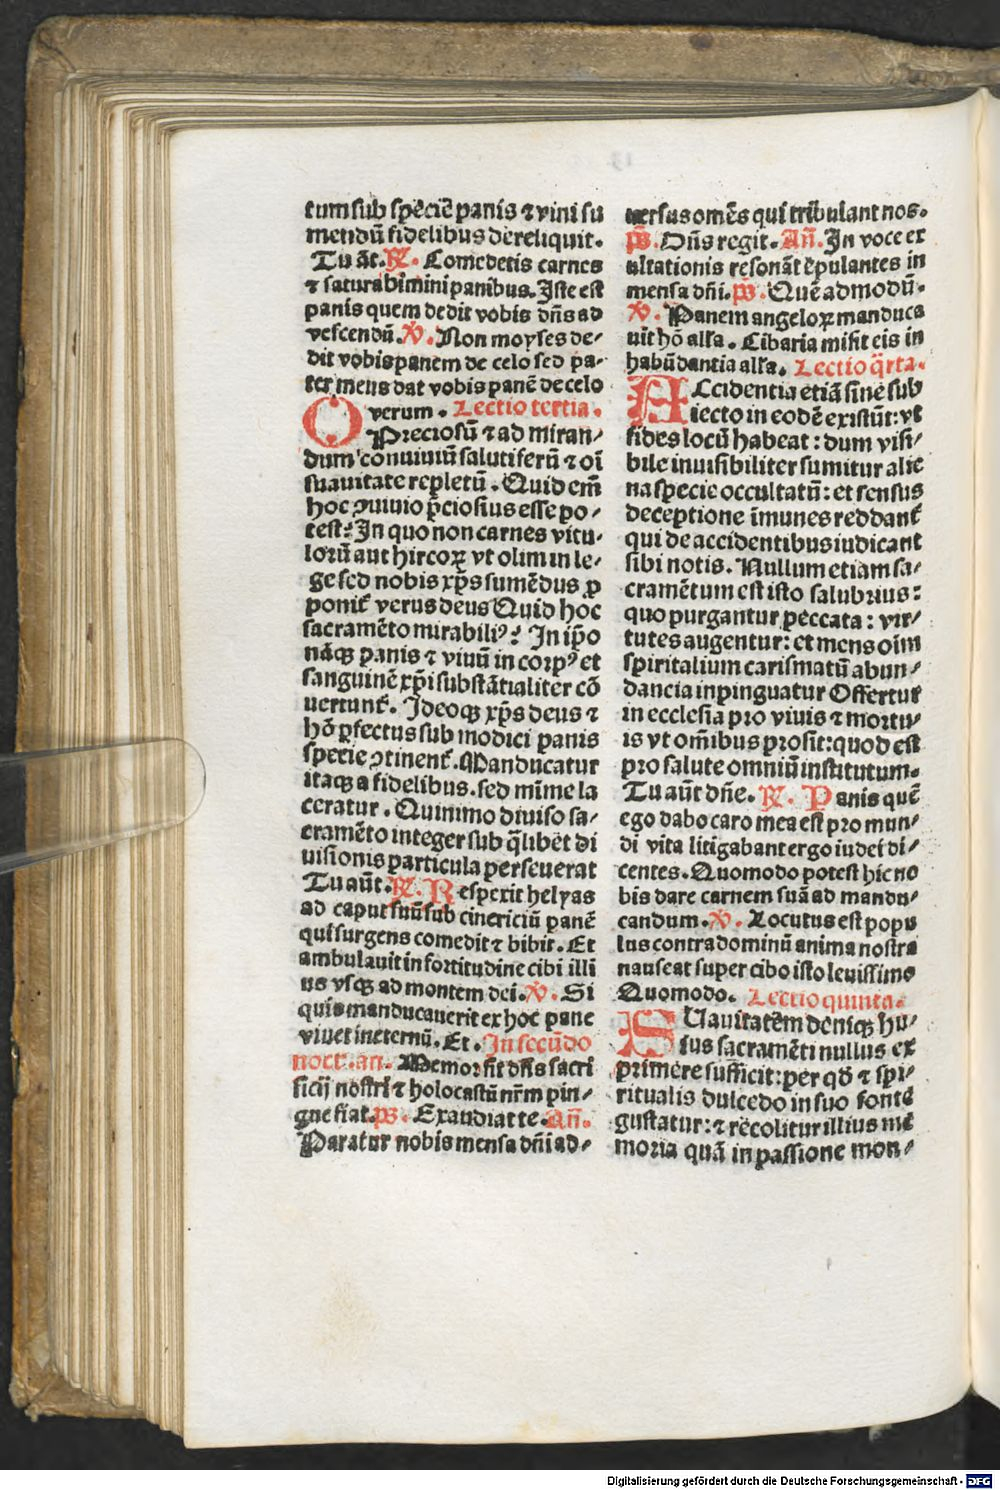 tum sub speciē panis ⁊ vini su
mendū fidelibus dereliquit.
Tu āt. ℟. Comedetis carnes
⁊ saturabimini panibus. Iste est
panis quem dedit vobis dn̄s ad
vescendū. ℣. Non moyses de⸗
dit vobis panem de celo sed pa⸗
ter meus dat vobis panē de celo
verum. Lectio tertia.
O Preciosū ⁊ ad miran⸗
dum conuiuiū salutiferū ⁊ oī
suauitate repletū. Quid em̄
hoc ꝯuiuio p̄ciosius esse po⸗
test? In quo non carnes vitu⸗
lorū aut hircoꝝ vt olim in le⸗
ge sed nobis xp̄s sumēdus ꝓ
ponit̄ verus deus Quid hoc
sacramēto mirabiliꝰ? In ip̄o
nāqꝫ panis ⁊ vinū in corpꝰ et
sanguinē xp̄i substātialiter cō
uertunt̄. Ideoqꝫ xp̄s deus ⁊
hō ꝑfectus sub modici panis
specie ꝯtinent̄. Manducatur
itaqꝫ a fidelibus. sed mīme la
ceratur. Quinimo diuiso sa⸗
cramēto integer sub q̄libet di
uisionis particula perseuerat
Tu aūt. ℟. Respexit helyas
ad caput suū sub cinericiū panē
qui surgens comedit ⁊ bibit. Et
ambulauit in fortitudine cibi illi
us vsqꝫ ad montem dei. ℣. Si
quis manducauerit ex hoc pane
viuet in eternū. Et. In secūdo
noct. an̄. Memor sit dn̄s sacri
ficij nostri ⁊ holocastū nr̄m pin⸗
gue fiat. ps̄. Exaudiat te. An̄.
Paratur nobis mensa dn̄i ad⸗
uersus omēs qui tribulant nos.
ps̄. Dn̄s regit. An̄. In voce ex
ultationis resonāt epulantes in
mensa dn̄i. ps̄. Quē admodū.
℣. Panem angeloꝝ manduca
uit hō alľa. Cibaria misit eis in
habūdantia alľa. Lectio q̄rta.
Accidentia etiā sine sub
iecto in eodē existūt: vt
fides locū habeat: dum visi⸗
bile inuisibiliter sumitur alie
na specie occultatū: et sensus
deceptione īmunes reddant̄
qui de accidentibus iudicant
sibi notis. Nullum etiam sa⸗
cramētum est isto salubrius:
quo purgantur peccata: vir⸗
tutes augentur: et mens oīm
spiritalium carismatū abun⸗
dancia inpinguatur Offertur
in ecclesia pro viuis ⁊ mortu⸗
is vt om̄ibus prosit: quod est
pro salute omniū institutum.
Tu aūt dn̄e. ℟. Panis quē
ego dabo caro mea est pro mun⸗
di vita litigabant ergo iudei di⸗
centes. Quomodo potest hic no
bis dare carnem suā ad mandu⸗
candum. ℣. Locutus est popu
lus contra dominū anima nostra
nauseat super cibo isto leuissimo
Quomodo. Lectio quinta.
Suauitatēm deniqꝫ hu⸗
ius sacramēti nullus ex
primere sufficit: per qđ ⁊ spi⸗
ritualis dulcedo in suo fonte
gustatur: ⁊ recolitur illius me
moria quā in passione mon⸗
Digitalisierung gefördert durch die Deutsche Forschungsgemeinschaft - DFG